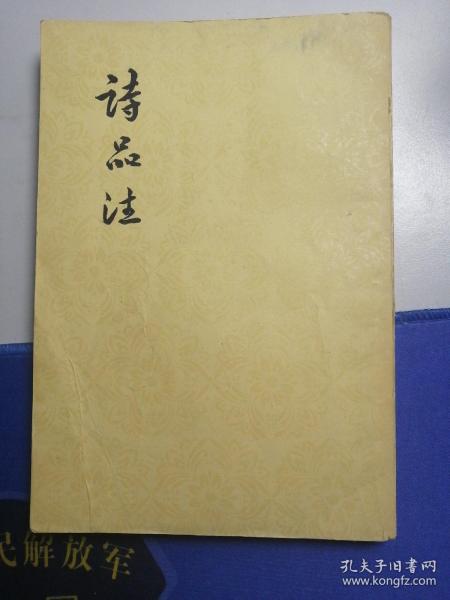 詩品注
民解放军
孔夫子旧书网
www.kongfz.com